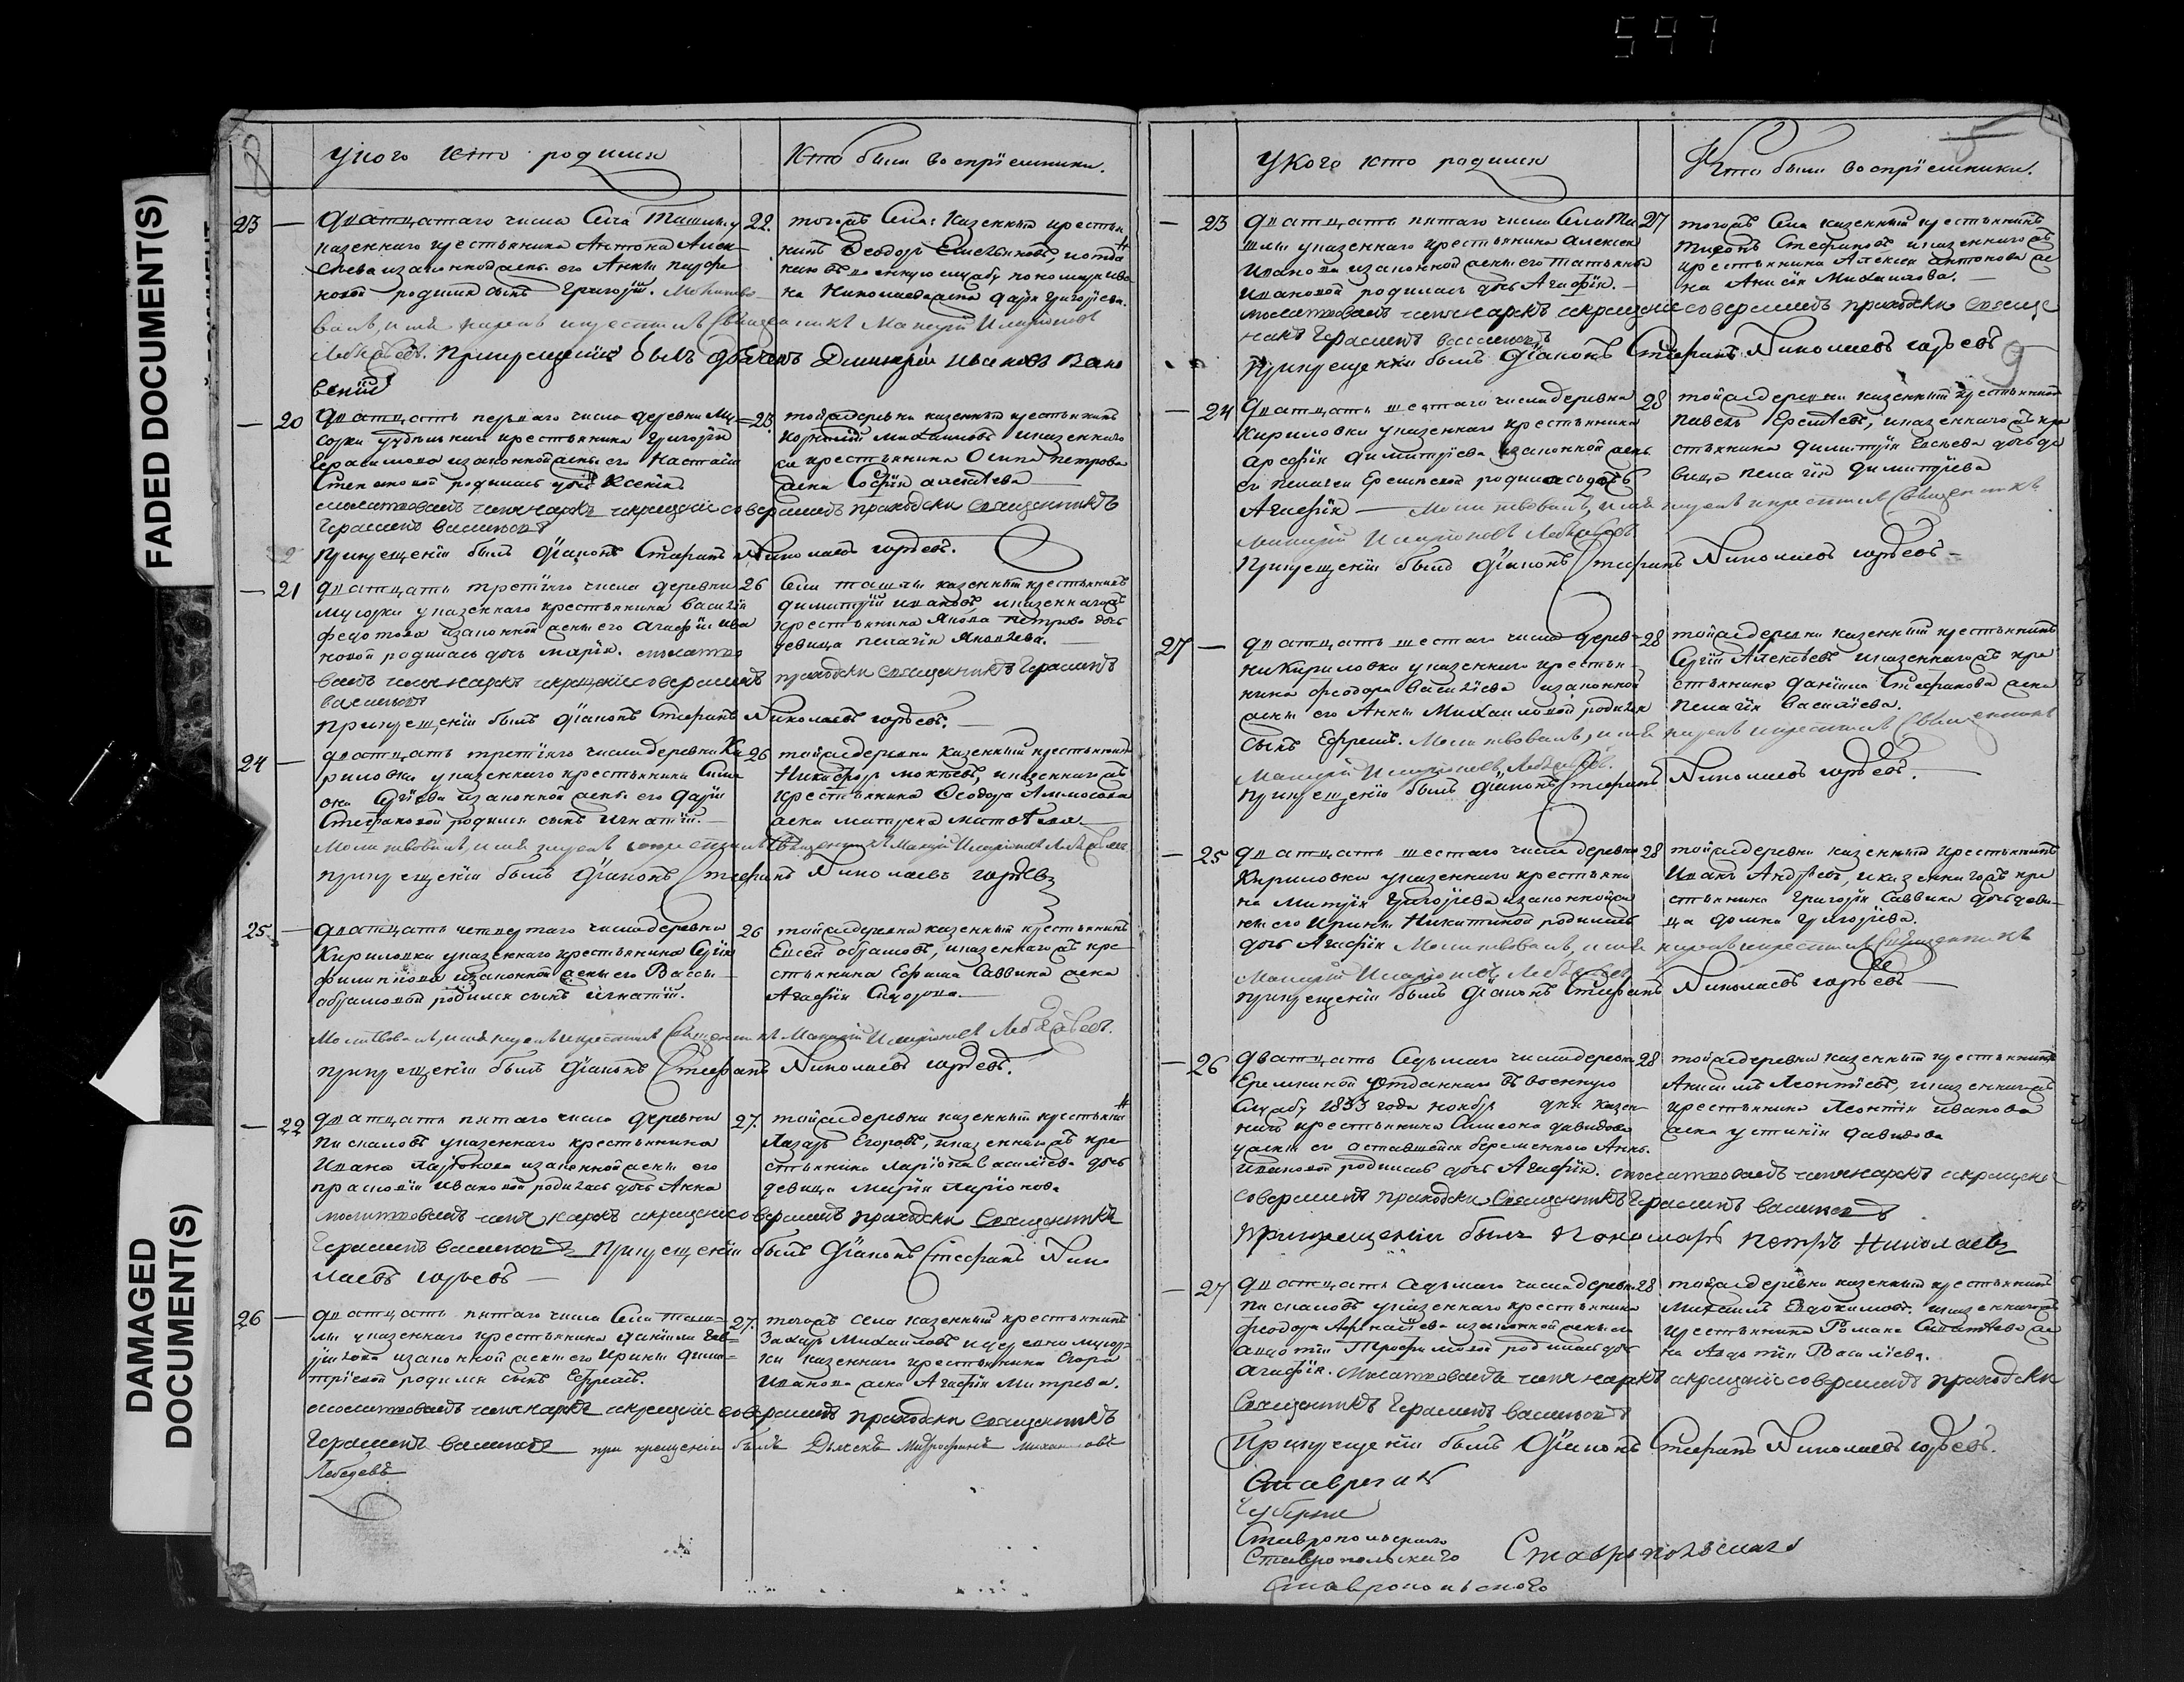 597
FADED DOCUMENT(S)
DAMAGED
DOCUMENT(S)
8
у кого кто родился
Кто были воспрiемники.
23 — Дватцатаго числа Села Ташлы у 22.
казеннаго крестьянина Антона Алек-
сѣева и законной жены его Анны
новой родился сынъ Григорiй. Молитво-
валъ, имя нарекъ и крестилъ Священникъ Макарiй Иларiоновъ
Лебедевъ. При крещенiи былъ дьячекъ Димитрiй Ивановъ
тогожъ Села казенный крестья
нинъ Ѳеодоръ Емельяновъ, и отда
ннаго въ военную службу пономаря Ива
на Николаева жена Дарья Григорьева.
— 20 Дватцать перваго числа деревни Му- 23
сорки удѣльнаго крестьянина Григорiя
Герасимова и законной жены его Настасiи
Степановой родилась дочь Ксенiя
молитвовалъ имя нарекъ и крещенiе совершилъ приходски священникъ
Герасимъ Васильевъ
При крещенiи былъ Дiаконъ Стефанъ Николаевъ Юрьевъ.
той же деревни казенный крестьянинъ
Корнилiй Михаиловъ и казеннаго
крестьянина Осипа Петрова
жена Софiя Алексѣева
— 21 дватцать третiяго числа деревни 26
Мусорки у казеннаго крестьянина Василiя
Федотова и законной жены его Агафiи Ива
новой родилась дочь Марiя. молитво
валъ имя нарекъ и крещенiе совершилъ приходски священникъ Герасимъ
Васильевъ
При крещенiи былъ Дiаконъ Стефанъ Николаевъ Юрьевъ.
Села Ташлы казенный крестьянинъ
Димитрiй Ивановъ, и казеннаго
крестьянина Якова Петрова дочь
девица Пелагiя Яковлева.
24 — дватцать третiяго числа деревни Ки 26
риловки у казеннаго крестьянина Симе
она Сергѣева и законной жены его Дарiи
Стефановой родился сынъ Игнатiй.
Молитвовалъ, имя нарекъ и крестилъ Священникъ Макарiй Иларiоновъ Лебедевъ
при крещенiи былъ Дiаконъ Стефанъ Николаевъ Юрьевъ
той же деревни казенный крестьянинъ
Никифоръ, и казеннаго
крестьянина Ѳеодора
жена Матрена Матвѣева.
25. — дватцать четвертаго числа деревни 26
Кириловки у казеннаго крестьянина Сергiя
Филипова и законной жены его Вассы
Абрамовой родился сынъ Игнатiй.
Молитвовалъ, имя нарекъ и крестилъ Священникъ Макарiй Иларiоновъ Лебедевъ.
при крещенiи былъ Дiаконъ Стефанъ Николаевъ Юрьевъ.
той же деревни казенный крестьянинъ
Евсей Абрамовъ, и казеннаго кре-
стьянина Ефима Саввина жена
Агафiя Сидорова.
— 22 дватцать пятаго числа деревни 27.
Пискаловъ у казеннаго крестьянина
Ивана Ларiонова и законной жены его
Прасковiи Ивановой родилась дочь Анна
молитвовалъ имя нарекъ и крещенiе совершилъ приходски Священникъ
Герасимъ Васильевъ При крещенiи былъ Дiаконъ Стефанъ Нико
лаевъ Юрьевъ —
той же деревни казенный крестьянинъ
Лазарь Егоровъ, и казеннаго кре
стьянина Ларiона Василiева дочь
девица Марiя Ларiонова
26 — дватцать пятаго числа Села Таш- 27.
лы у казеннаго крестьянина Данiила Гав
рилова и законной жены его Ирины Дими-
трiевой родился сынъ Ефремъ.
молитвовалъ имя нарекъ и крещенiе совершилъ приходски Священникъ
Герасимъ Васильевъ при крещенiи былъ Дьячекъ Митрофанъ Михаиловъ
Лебедевъ
тогожъ села казенный крестьянинъ
Захаръ Михаиловъ и деревни Мусор-
ки казеннаго крестьянина Егора
Иванова жена Агафiя Митрева.
5
9
У кого кто родился
Кто были воспрiемники.
— 23 дватцать пятаго числа Села Та 27
шлы у казеннаго крестьянина Алексея
Иванова и законной жены его Татьяны
Ивановой родилась дочь Агафiя.
молитвовалъ имя нарекъ и крещенiе совершилъ приходски Священ
никъ Герасимъ Васильевъ
При крещенiи былъ Дiаконъ Стефанъ Николаевъ Юрьевъ
тогожъ Села казенный крестьянинъ
Тихонъ Стефановъ и казеннаго
крестьянина Алексея Антонова же
на Анисiя Михаилова.
— 24 Дватцать шестаго числа деревни 28
Кириловки у казеннаго крестьянина
Арефiя Димитрiева и законной жены
его Пелагеи Ереминой родилась дочь
Агафiя — Молитвовалъ, имя нарекъ и крестилъ Священникъ
Макарiй Иларiоновъ Лебедевъ
При крещенiи былъ Дiаконъ Стефанъ Николаевъ Юрьевъ —
той же деревни казенный крестьянинъ
Павелъ, и казеннаго кре
стьянина Димитрiя Евсеева дочь де
вица Пелагiя Димитрiева
27 — дватцать шестаго числа дерев- 28
ни Кириловки у казеннаго крестья-
нина Феодора Василiева и законной
жены его Анны Михаиловой родился
сынъ Ефремъ. Молитвовалъ, имя нарекъ и крестилъ Священникъ
Макарiй Иларiоновъ Лебедевъ.
При крещенiи былъ Дiаконъ Стефанъ Николаевъ Юрьевъ.
той же деревни казенный крестьянинъ
Сергiй Алексѣевъ и казеннаго кре
стьянина Данiила Стефанова жена
Пелагiя Василiева.
— 25 дватцать шестаго числа деревни 28
Кириловки у казеннаго крестьяни
на Митрiя Григорiева и законной же
ны его Ирины Никитиной родилась
дочь Агафiя Молитвовалъ, имя нарекъ и крестилъ Священникъ
Макарiй Иларiоновъ Лебедевъ
при крещенiи былъ Дiаконъ Стефанъ Николаевъ Юрьевъ —
той же деревни казенный крестьянинъ
Иванъ Андрѣевъ, и казеннаго кре
стьянина Григорiя Саввина дочь деви-
ца Домна Григорiева.
— 26 дватцать Седьмаго числа деревни 28
Ереминой у отданнаго въ военную
Службу 1833 года ноября дня казен-
наго крестьянина Симеона Давидова
у жены его оставшейся беременного Анны
Ивановой родилась дочь Агафiя. молитвовалъ имя нарекъ и крещенiе
совершилъ приходски Священникъ Герасимъ Васильевъ
При крещенiи былъ Пономарь Петръ Николаевъ
той же деревни казенный крестьянинъ
Анисимъ Леонтiевъ, и казеннаго
крестьянина Леонтiя Иванова
жена Устинiя Давидова
— 27 дватцать Седьмаго числа деревни 28.
Пискаловъ у казеннаго крестьянина
Феодора и законной жены его
Авдотiи Трофимовой родилась дочь
Агафiя. Молитвовалъ имя нарекъ и крещенiе совершилъ приходски
Священникъ Герасимъ Васильевъ
При крещенiи былъ Дiаконъ Стефанъ Николаевъ Юрьевъ.
той же деревни казенный крестьянинъ
Михаилъ Евдокимовъ. и казеннаго
крестьянина Романа же
на Авдотiя Василiева.
Ставропольскаго
Ставропольскаго Ставропольскаго
Ставропольскаго